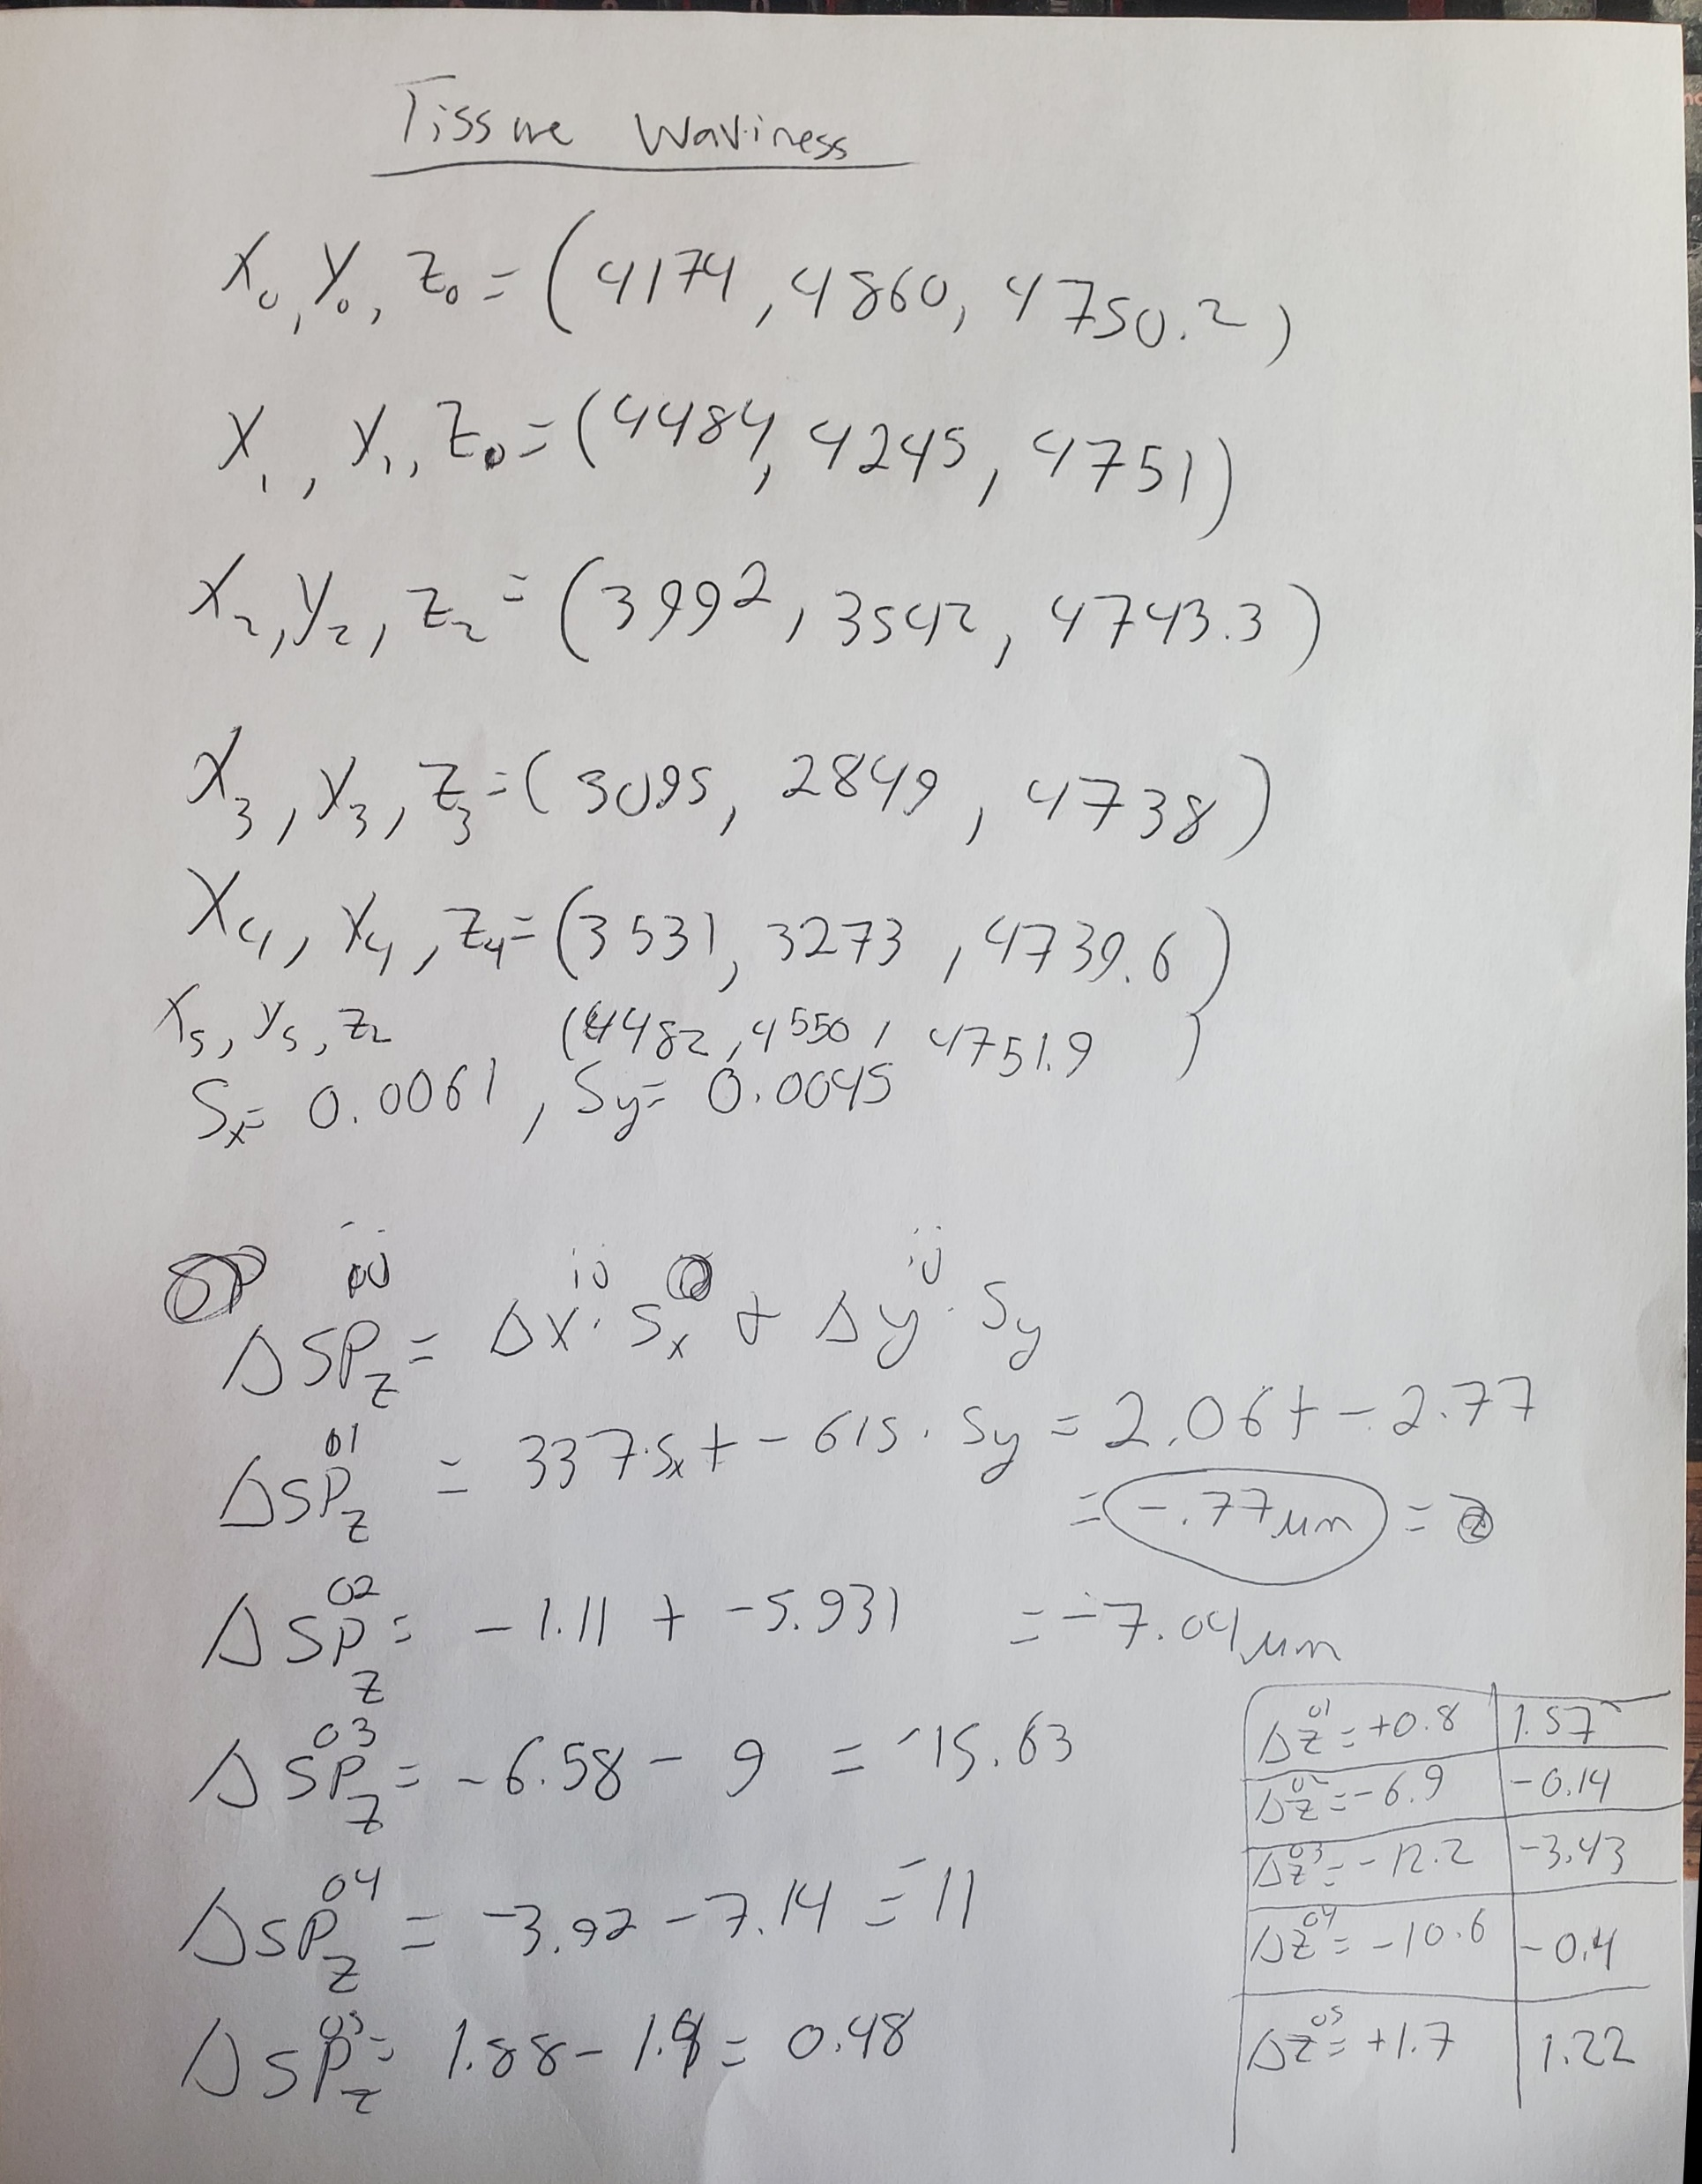 Tissue Waviness
X₀, Y₀, Z₀ = (4174, 4860, 4750.2)
X₁, Y₁, Z₀ = (4484, 4245, 4751)
X₂, Y₂, Z₂ = (3992, 3542, 4743.3)
X₃, Y₃, Z₃ = (3095, 2849, 4738)
X₄, Y₄, Z₄ = (3531, 3273, 4739.6)
X₅, Y₅, Z₂ (4482, 4550, 4751.9)
Sₓ = 0.0061, Sy = 0.0045
ΔSP_z^ij = Δx^ij · Sₓ + Δy^ij · Sy
ΔSP_z^01 = 337·Sₓ + -615 · Sy = 2.06 + -2.77
= -.77 μm =
ΔSP_z^02 = -1.11 + -5.931 = -7.04 μm
ΔSP_z^03 = -6.58 - 9 = -15.63
ΔSP_z^04 = -3.92 - 7.14 = -11
ΔSP_z^05 = 1.88 - 1.4 = 0.48
Δz^01 = +0.8 1.57
Δz^02 = -6.9 -0.14
Δz^03 = -12.2 -3.43
Δz^04 = -10.6 -0.4
Δz^05 = +1.7 1.22